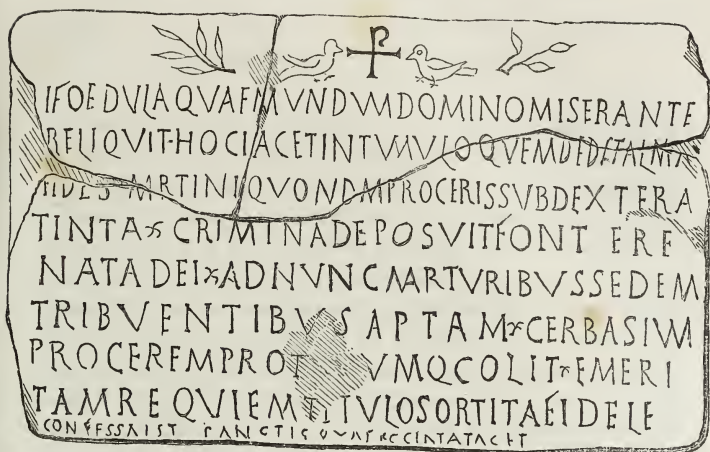 IFOEDVLAQVAFMVNDVMDOMINOMISERANTE
RELIQVIT·HOCIACETINTVMVLOQVEMDEDITALMA
FIDES MRTINIQVONDMPROCERISSVBDEXTERA
TINTA CRIMINADEPOSVITFONT ERE
NATADEI ADNVNCMARTVRIBVSSEDEM
TRIBVENTIBVSAPTAM CERBASIVM
PROCEREMPROT VMQCOLIT EMERI
TAMREQVIEMTITVLOSORTITAFIDELE
CONFFSSAIST SANCTIS